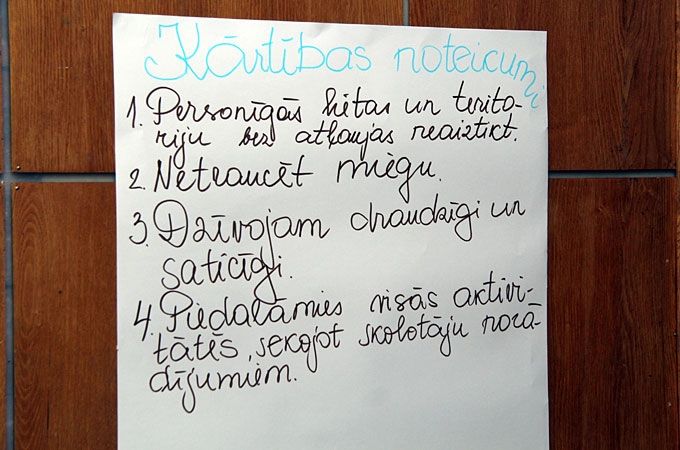 Kārtības noteicumi
1. Personīgās lietas un terito-
riju bez atļaujas neaiztikt.
2. Netraucēt miegu.
3. Dzīvojam draudzīgi un
saticīgi.
4. Piedalāmies visās aktivi-
tātēs, sekojot skolotāju norā-
dījumiem.